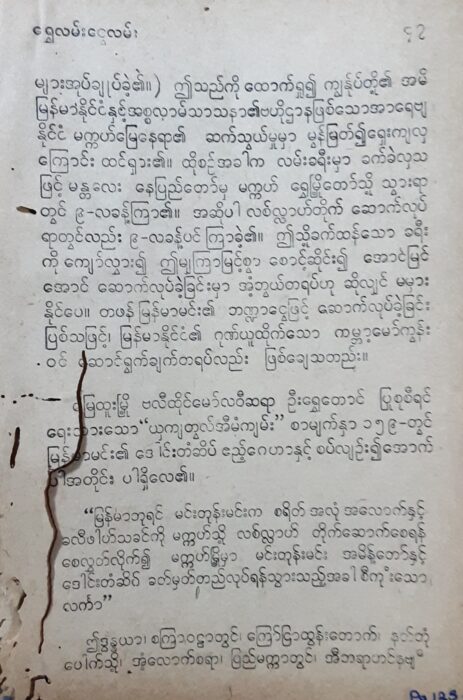 ရွှေလမ်းငွေလမ်း ၄၃
များအုပ်ချုပ်ခဲ့၏။) ဤသည်ကို ထောက်ရှု၍ ကျွန်ုပ်တို့၏ အမိ
မြန်မာနိုင်ငံနှင့်အစ္စလာမ်သာသနာ၏ဗဟိုဌာနဖြစ်သောအာရေဗျ
နိုင်ငံ မက္ကဟ်မြေနေရာ၏ ဆက်သွယ်မှုမှာ မွန်မြတ်၍ရှေးကျလှ
ကြောင်း ထင်ရှား၏။ ထိုစဉ်အခါက လမ်းခရီးမှာ ခက်ခဲလှသ
ဖြင့် မန္တလေး နေပြည်တော်မှ မက္ကဟ် ရွှေမြို့တော်သို့ သွားရာ
တွင် ၉-လခန့်ကြာ၏။ အဆိုပါ လစ်လ္လာဟ်တိုက် ဆောက်လုပ်
ရာတွင်လည်း ၉-လခန့်ပင် ကြာခဲ့၏။ ဤသို့ခက်ထန်သော ခရီး
ကို ကျော်လွှား၍ ဤမျှကြာမြင့်စွာ စောင့်ဆိုင်း၍ အောင်မြင်
အောင် ဆောက်လုပ်ခဲ့ခြင်းမှာ အံ့ဘွယ်တရပ်ဟု ဆိုလျှင် မမှား
နိုင်ပေ။ တဖန် မြန်မာမင်း၏ ဘဏ္ဍာငွေဖြင့် ဆောက်လုပ်ခဲ့ခြင်း
ဖြစ်သဖြင့်၊ မြန်မာနိုင်ငံ၏ ဂုဏ်ယူထိုက်သော ကမ္ဘာ့မော်ကွန်း
ဝင် ဆောင်ရွက်ချက်တရပ်လည်း ဖြစ်ချေသတည်း။
မြေထူးမြို့ ဗလီထိုင်မော်လဝီဆရာ ဦးရွှေတောင် ပြုစုစီရင်
ရေးသားသော“ယှကျတွလ်အီမံကျမ်း” စာမျက်နှာ ၁၅၉-တွင်
မြန်မာမင်း၏ ဒေါင်းတံဆိပ် ဧည့်ဂေဟာနှင့် စပ်လျဉ်း၍အောက်
ပါအတိုင်း ပါရှိလေ၏။
“မြန်မာဘုရင် မင်းတုန်းမင်းက စရိတ် အလုံ အလောက်နှင့်
ခလီဖါဟ်သခင်ကို မက္ကဟ်သို့ လစ်လ္လာဟ် တိုက်ဆောက်စေရန်
စေလွှတ်လိုက်၍ မက္ကဟ်မြို့မှာ မင်းတုန်းမင်း အမိန့်တော်နှင့်
ဒေါင်းတံဆိပ် ခတ်မှတ်တည်လုပ်ရန်သွားသည့်အခါ စီကုံးသော
လင်္ကာ”
ဤဒွန္နယာ၊ စကြာဝဠာတွင်၊ ကြော်ငြာထွန်းတောက်၊
ပေါက်သို့၊ အံ့လောက်စရာ၊ ပြည်မက္ကာတွင်၊